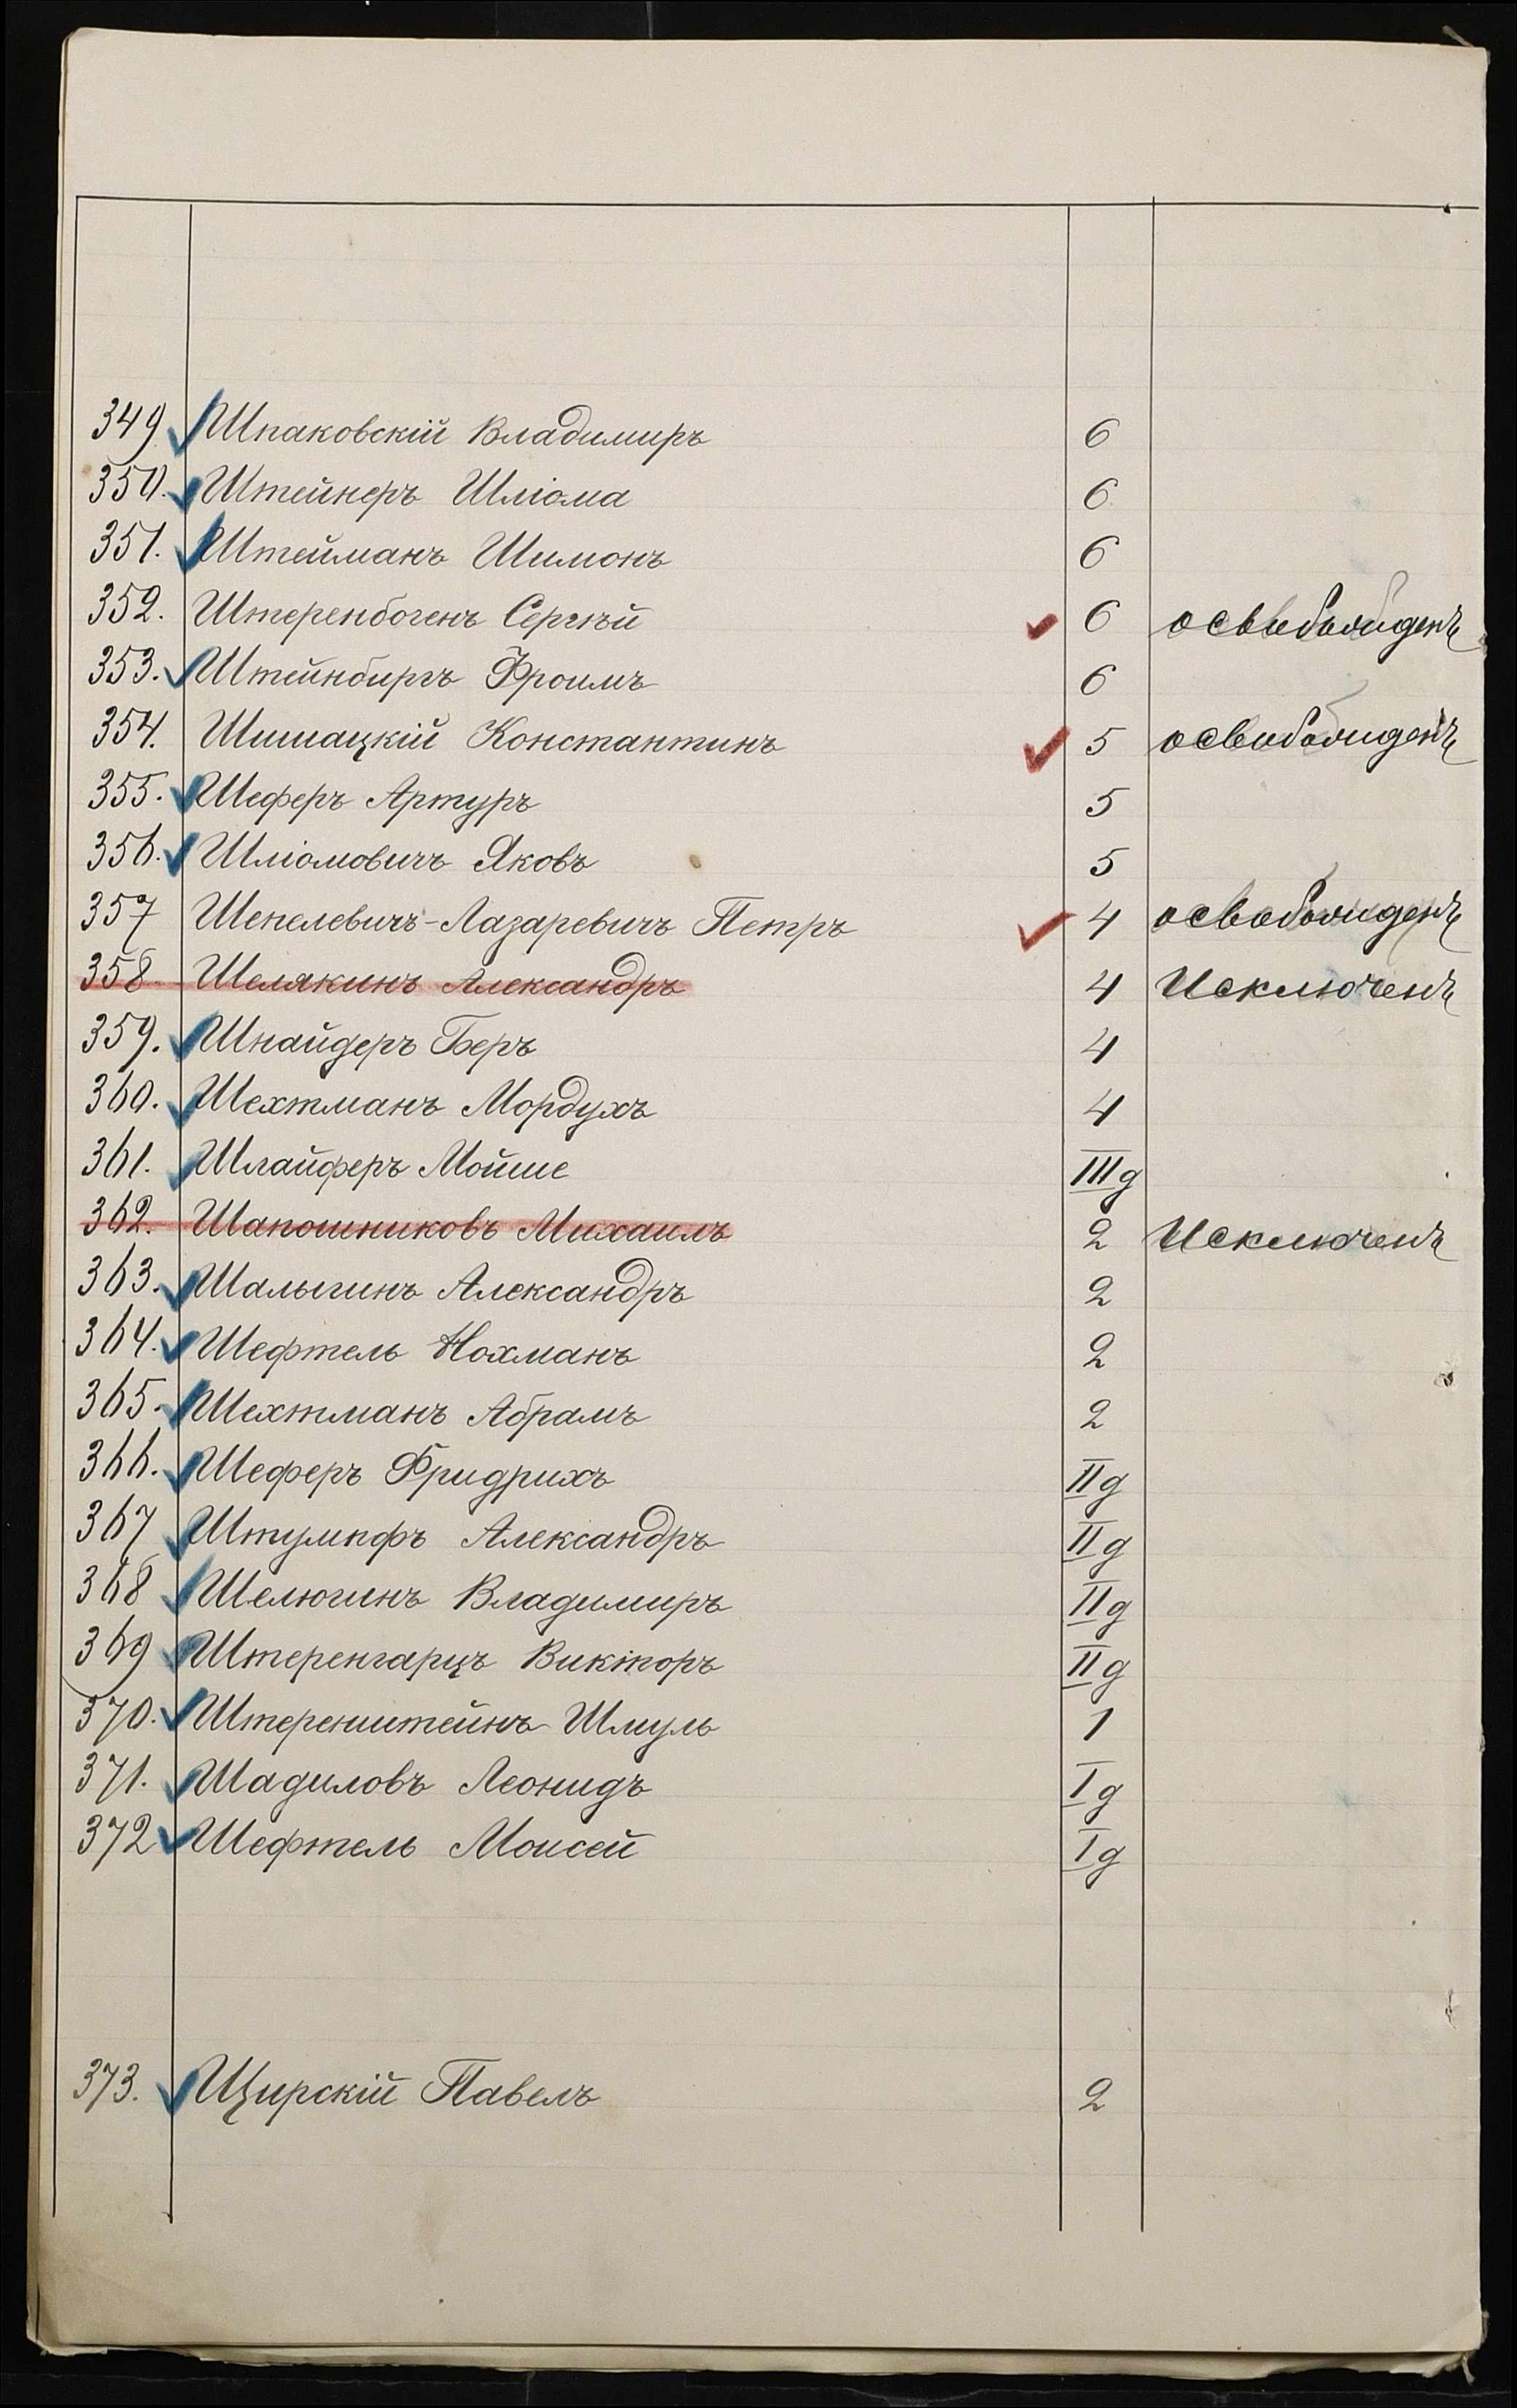 349 Шпаковскій Владимиръ 6
350. Штейнеръ Шліома 6
351. Штейманъ Шимонъ 6
352. Штеренбогенъ Сергѣй 6 освобожденъ
353. Штейнбиргъ Фроимъ 6
354. Шишацкій Константинъ 5 освобожденъ
355. Шеферъ Артуръ 5
356. Шліомовичъ Яковъ 5
357 Шепелевичъ-Лазаревичъ Петръ 4 освобожденъ
358 Шелякинъ Александръ 4 Исключенъ
359. Шнайдеръ Беръ 4
360. Шехтманъ Мордухъ 4
361. Шлайферъ Мойше III д
362. Шапошниковъ Михаилъ 2 Исключенъ
363. Шалыгинъ Александръ 2
364. Шефтель Нохманъ 2
365. Шехтманъ Абрамъ 2
366. Шеферъ Фридрихъ II д
367 Штумпфъ Александръ II д
368 Шелюгинъ Владимиръ II д
369 Штеренгарцъ Викторъ II д
370. Штеренштейнъ Шмуль 1
371. Шадиловъ Леонидъ I д
372 Шефтель Моисей I д
373. Щирскій Павелъ 2